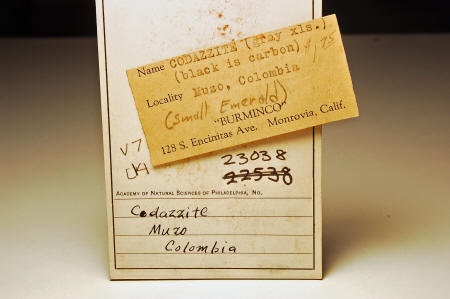 Name CODAZZITE (gray xls.)
(black is carbon)
Locality Muzo, Colombia
(small Emerald)
"BURMINCO"
128 S. Encinitas Ave. Monrovia, Calif.
V7
23038
42538
ACADEMY OF NATURAL SCIENCES OF PHILADELPHIA, NO.
Codazzite
Muzo
Colombia